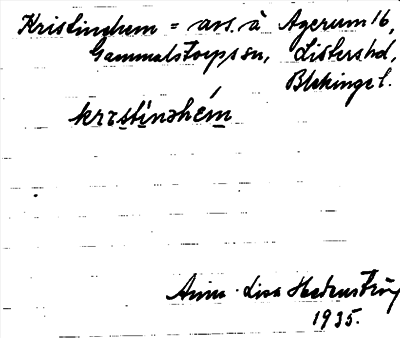 Kristinehem = avs. å Agerum 16,
Gammalstorps sn, Listers hd,
Blekinge l.
krɪstinəhém
Anna-Lisa Hedenström
1935.